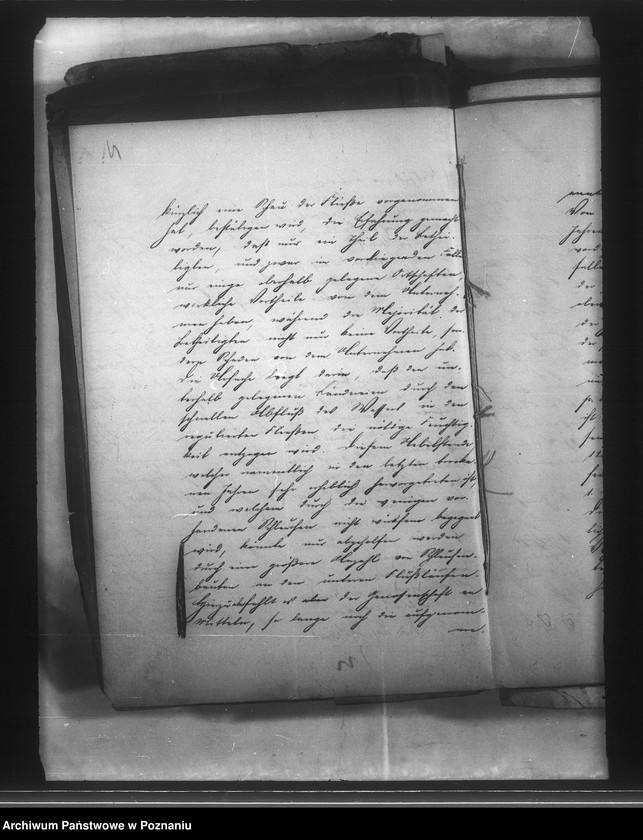 kürzlich eine Schau der Fließe vorgenommen
hat, bestätigen wird, die Erfahrung gemacht
worden, daß nur ein Theil der Bethei-
ligten, und zwar im vorliegenden Falle
nur einige oberhalb gelegene Ortschaften,
wirkliche Vortheile von dem Unterneh-
men haben, während die Majorität der
Betheiligten nicht nur keine Vortheile, son-
dern Schaden von dem Unternehmen hat.
Die Ursache liegt darin, daß den un-
terhalb gelegenen Ländereien durch den
schnellen Abfluß des Wassers in den
regulirten Fließen die nöthige Feuchtig-
keit entzogen wird. Diesem Uebelstande
welcher namentlich in den letzten trocke-
nen Jahren sehr erheblich hervorgetreten ist,
und welchem durch die wenigen vor-
handenen Schleusen nicht wirksam begegnet
wird, könnte nur abgeholfen werden
durch eine größere Anzahl von Schleusen-
bauten an den unteren Flußläufen.
Hierzu fehlt es aber der Genossenschaft an
Mitteln, so lange noch die aufgenom-
me-
Von
Jahren
der
der
ist
Archiwum Państwowe w Poznaniu